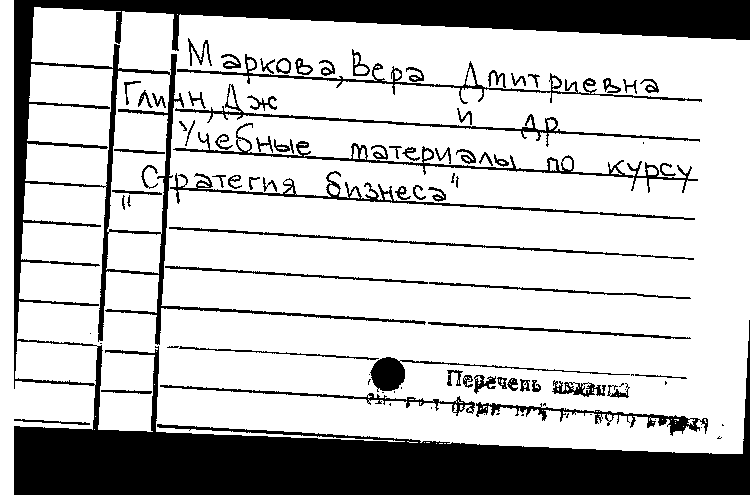 Маркова, Вера Дмитриевна
Глинн, Дж и др
Учебные материалы по курсу
"Стратегия бизнеса"
Перечень